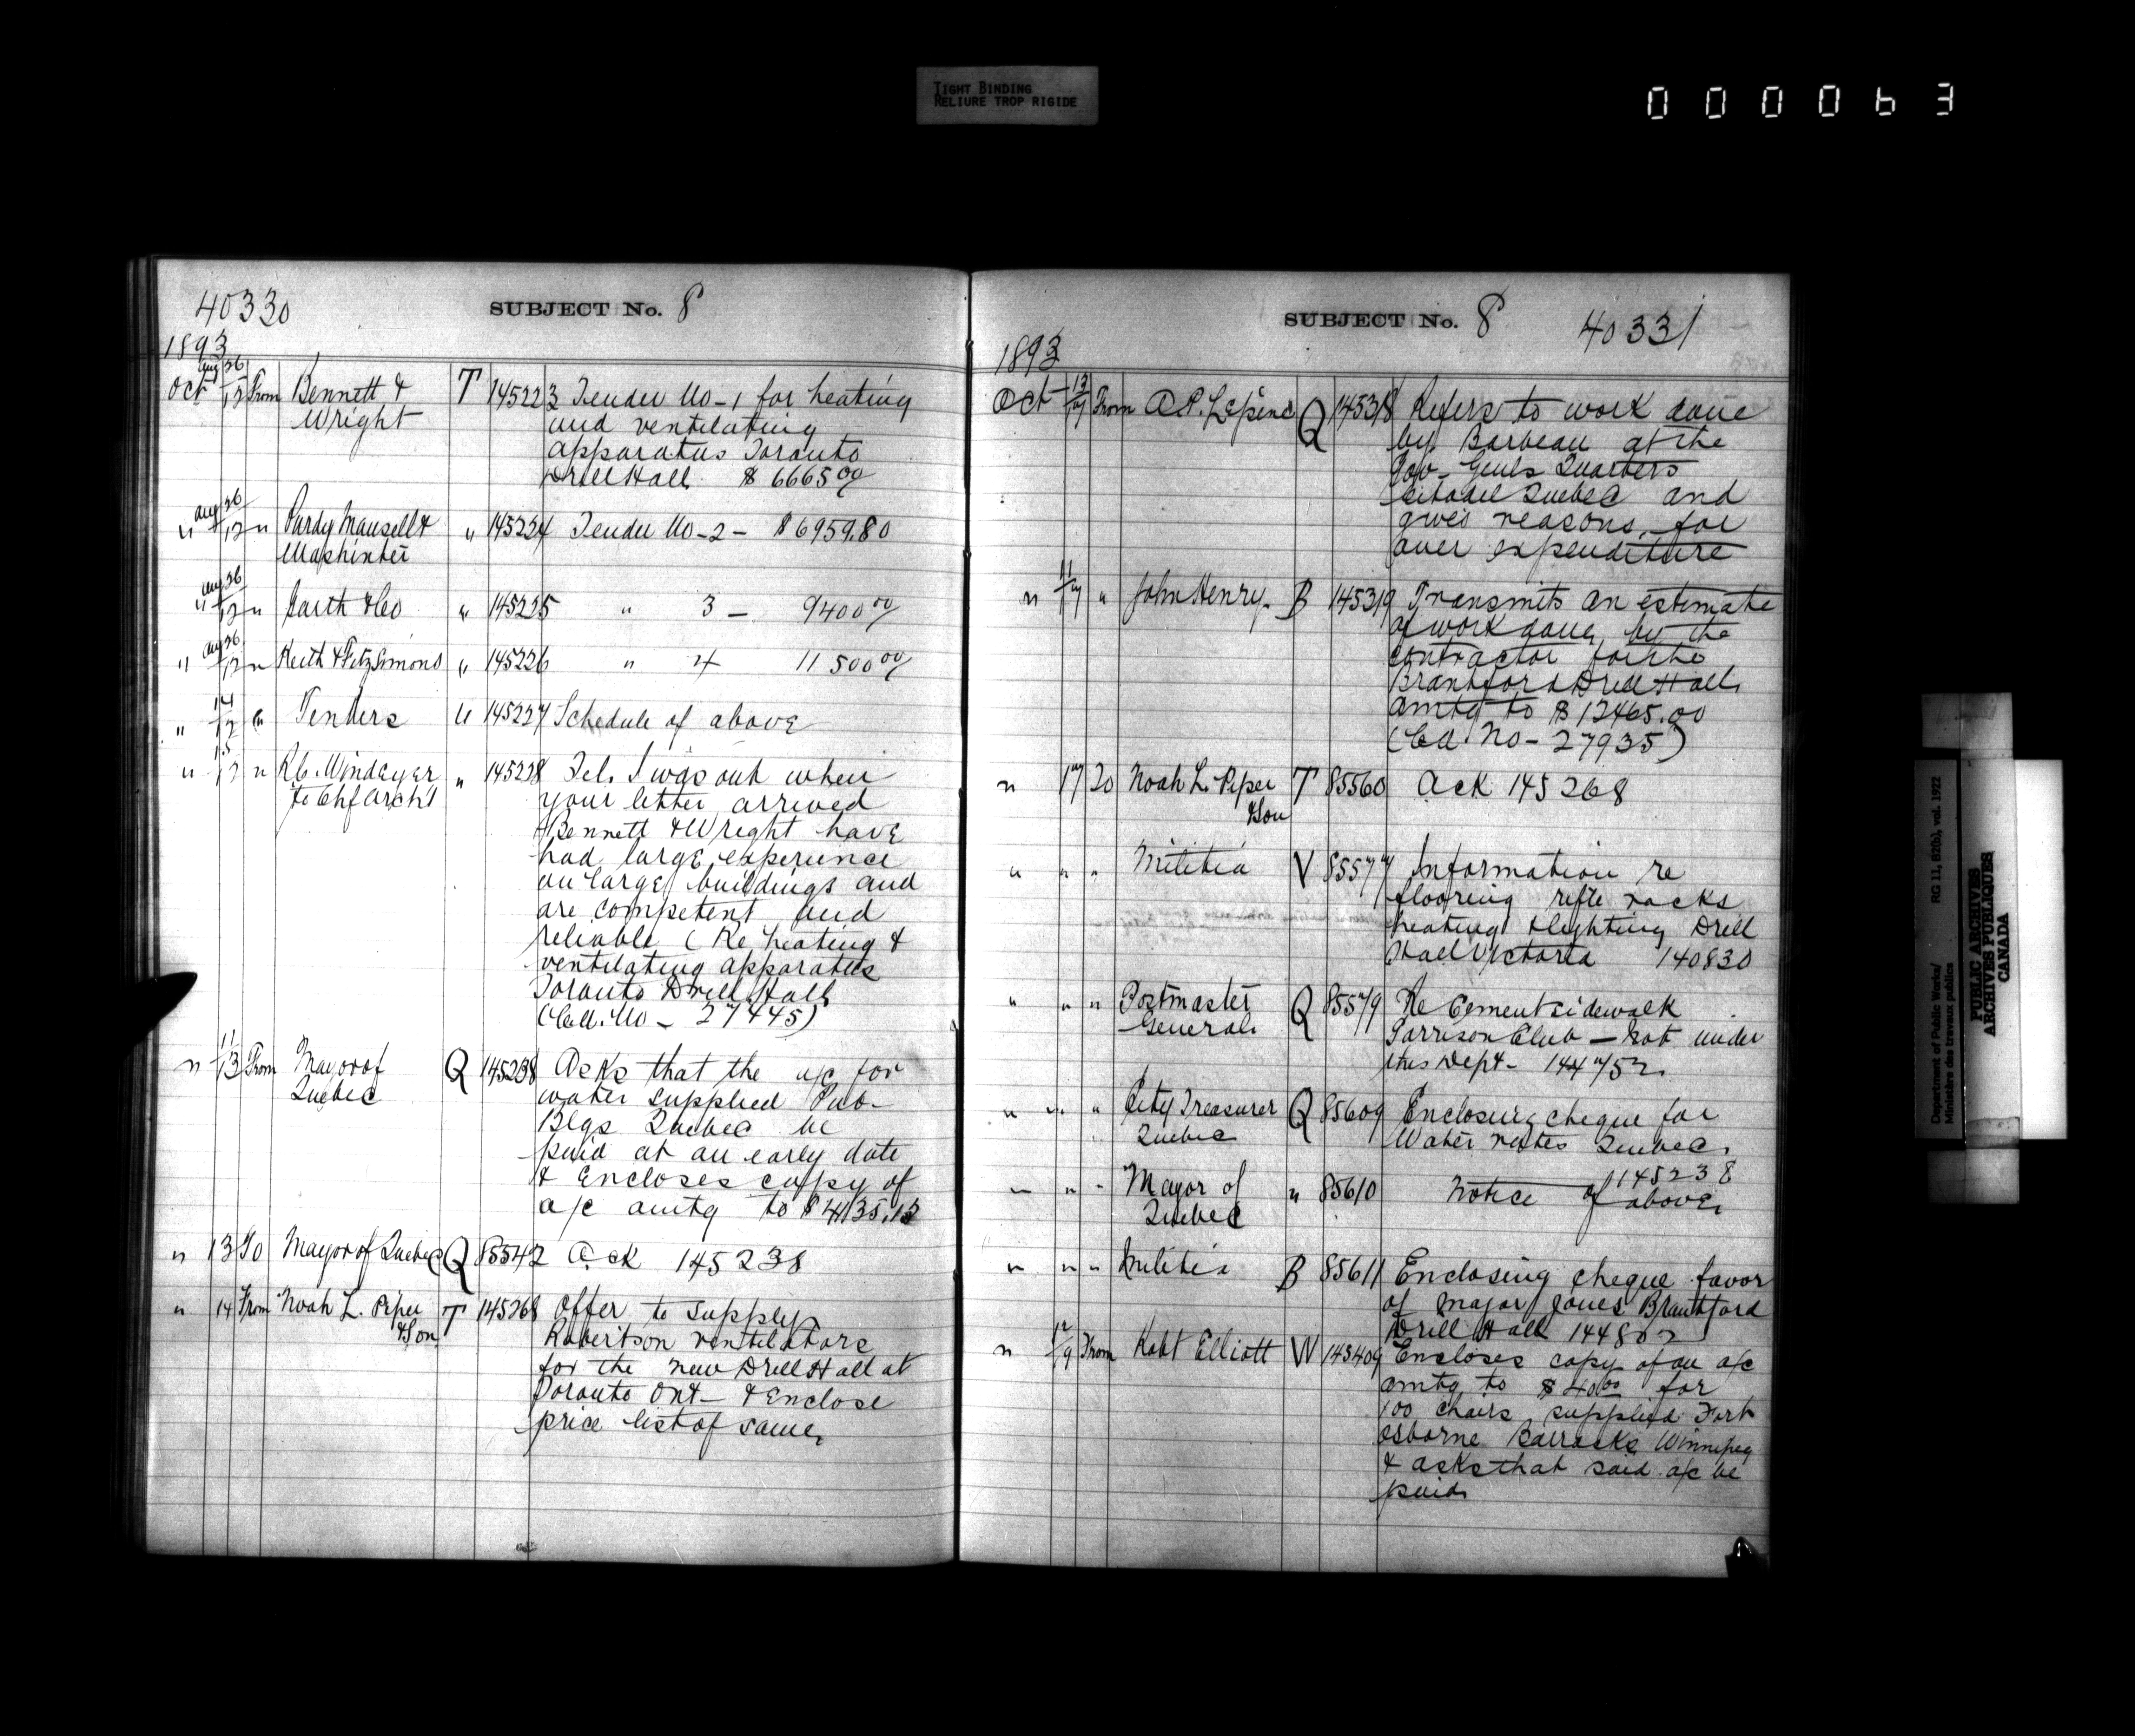 TIGHT BINDING
RELIURE TROP RIGIDE
000063
40330
SUBJECT No. 8
1893
Oct Aug 26/12 From Bennett & T 145223 Tender No-1 for heating
Wright and ventilating
apparatus Toronto
Drill Hall $ 6665 00/
" Aug 26/12 " Purdy Mansell & " 145224 Tender No-2- $6959.80
Mashinter
" Aug 26/12 " Garth & Co " 145225 " 3 - 9400 00/
" Aug 26/12 " Keith & Fitzsimons " 145226 " 4 11500 00/
" 14/12 " Tenders " 145227 Schedule of above
" 15/12 " R C. Windeyer " 145228 Tel. I was out when
to Chf Arch't your letter arrived
Bennett & Wright have
had large experience
on large buildings and
are competent and
reliable (Re heating &
ventilating apparatus
Toronto Drill Hall
(Cd. No - 27445)
" 11/13 From Mayor of Q 145238 Asks that the a/c for
Quebec water supplied Pub-
Blgs Quebec be
paid at an early date
& Encloses copy of
a/c amtg to $4135.13
" 13 To Mayor of Quebec Q 85542 Ack 145238
" 14 From Noah L. Piper T 145268 Offer to supply
& Son Robertson ventilators
for the new Drill Hall at
Toronto Ont- & Enclose
price list of same,
SUBJECT No. 8
40331
1893
Oct 13/17 From A.P. Lepine Q 145318 Refers to work done
by Barbeau at the
Gov- Genls Quarters
Citadel Quebec and
gives reasons for
over expenditure
" 11/17 " John Henry- B 145319 Transmits an estimate
of work done by the
contractor for the
Brantford Drill Hall
amtg to $12465.00
(Cd. No- 27935)
" 17 To Noah L. Piper T 85560 Ack 145268
& Son
" " " Militia V 85577 Information re
flooring rifle racks
heating & lighting Drill
Hall Victoria 140830
" " " Postmaster Q 85579 Re Cement sidewalk
General Garrison Club - Not under
this Dept- 144752
" " " City Treasurer Q 85609 Enclosing cheque for
Quebec Water rates Quebec,
145238
" " " Mayor of " 85610 Notice of above,
Quebec
" " " Militia B 85611 Enclosing cheque favor
of Major Jones Brantford
Drill Hall 144802
" 12/19 From Robt Elliott W 145409 Encloses copy of an a/c
amtg to $40 00 for
100 chairs supplied Fort
Osborne Barracks Winnipeg
& asks that said a/c be
paid
Department of Public Works/ RG 11, B2(b), vol. 1922
Ministère des travaux publics
PUBLIC ARCHIVES
ARCHIVES PUBLIQUES
CANADA